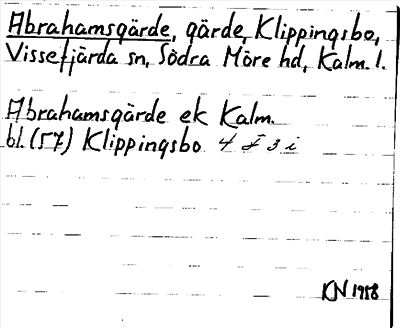 Abrahamsgärde, gärde, Klippingsbo,
Vissefjärda sn, Södra Möre hd, Kalm. l.
Abrahamsgärde ek Kalm.
bl. (57) Klippingsbo 4 f 3 i
KN 1958